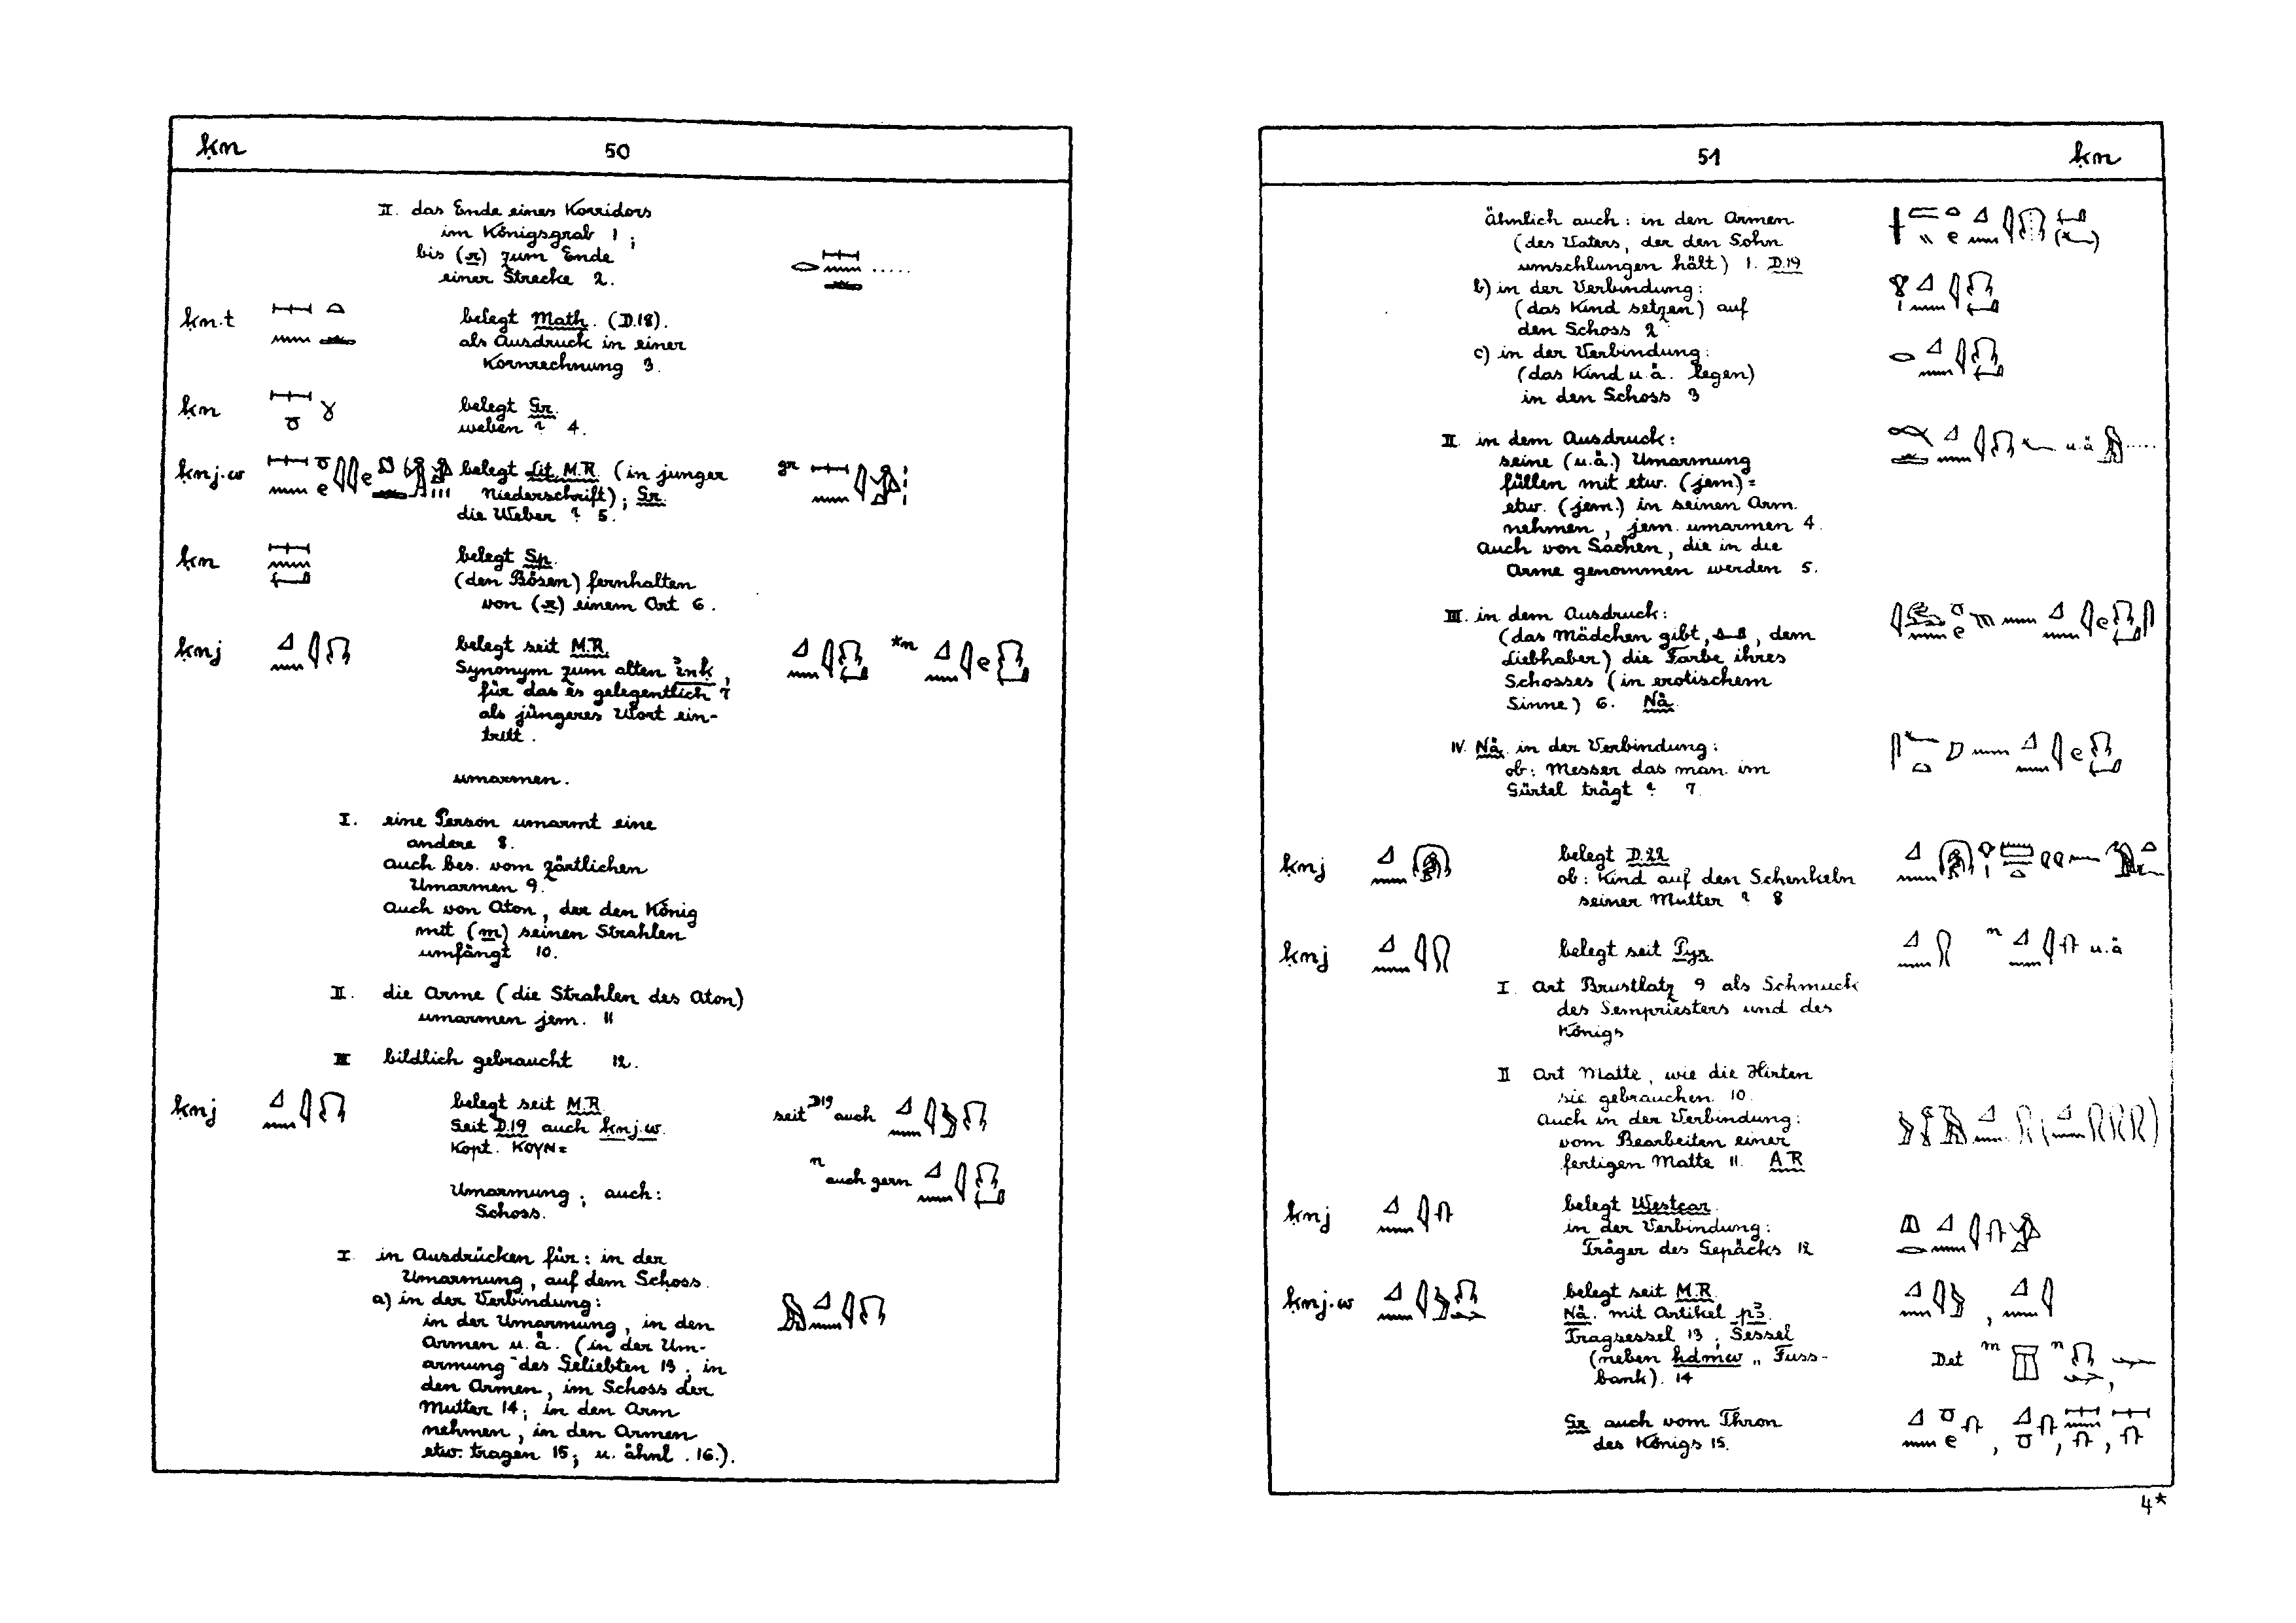 ḳn
50
II. das Ende eines Korridors
im Königsgrab 1;
bis (r) zum Ende
einer Strecke 2.
ḳn.t
belegt Math. (D.18).
als Ausdruck in einer
Kornrechnung 3.
ḳn
belegt Gr.
weben ? 4.
ḳnj.w
belegt Lit. M.R. (in junger
Niederschrift); Gr.
die Weber ? 5.
gr
ḳn
belegt Sp.
(den Bösen) fernhalten
von (r) einem Ort 6.
ḳnj
belegt seit M.R.
Synonym zum alten ỉnḳ,
für das es gelegentlich 7
als jüngeres Wort ein-
tritt.
*n
umarmen.
I. eine Person umarmt eine
andere 8.
Auch bes. vom zärtlichen
Umarmen 9.
Auch von Aton, der den König
mit (m) seinen Strahlen
umfängt 10.
II. die Arme (die Strahlen des Aton)
umarmen jem. 11
III bildlich gebraucht 12.
ḳnj
belegt seit M.R.
Seit D.19 auch ḳnj.w.
Kopt. KOYN=
seit D19 auch
n auch gern
Umarmung; auch:
Schoss.
I. in Ausdrücken für: in der
Umarmung, auf dem Schoss.
a) in der Verbindung:
in der Umarmung, in den
Armen u.ä. (in der Um-
armung des Geliebten 13; in
den Armen, im Schoss der
Mutter 14; in den Arm
nehmen, in den Armen
etw. tragen 15; u. ähnl. 16.).
51
ḳn
ähnlich auch: in den Armen
(des Vaters, der den Sohn
umschlungen hält) 1. D.19
b) in der Verbindung:
(das Kind setzen) auf
den Schoss 2
c) in der Verbindung:
(das Kind u.ä. legen)
in den Schoss 3
II. in dem Ausdruck:
seine (u.ä.) Umarmung
füllen mit etw. (jem.) =
etw. (jem.) in seinen Arm
nehmen, jem. umarmen 4.
Auch von Sachen, die in die
Arme genommen werden 5.
u.ä
III. in dem Ausdruck:
(das Mädchen gibt, dem
Liebhaber) die Farbe ihres
Schosses (in erotischem
Sinne) 6. Nä.
IV. Nä. in der Verbindung:
ob: Messer das man im
Gürtel trägt ? 7.
ḳnj
belegt D.22
ob: Kind auf den Schenkeln
seiner Mutter ? 8
ḳnj
belegt seit Pyr.
n
u.ä
I. Art Brustlatz 9 als Schmuck
des Sempriesters und des
Königs
II Art Matte, wie die Hirten
sie gebrauchen. 10.
Auch in der Verbindung:
vom Bearbeiten einer
fertigen Matte 11. A.R
ḳnj
belegt Westcar.
in der Verbindung:
Träger des Gepäcks 12
ḳnj.w
belegt seit M.R.
Nä. mit Artikel p3.
Tragsessel 13; Sessel
(neben hdmw „Fuss-
bank). 14
Det m n
Gr auch vom Thron
des Königs 15.
4*